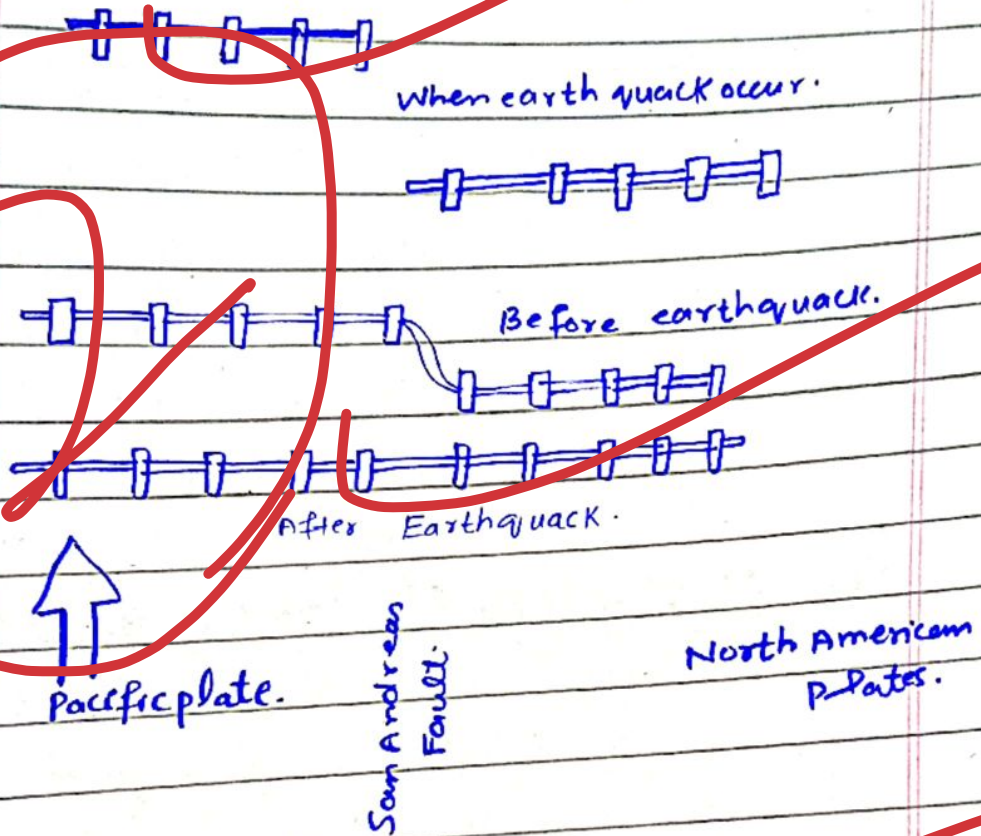 When earth quack occur.
Before earthquack.
After Earthquack.
Pacific plate.
San Andreas
Fault.
North American
Plates.